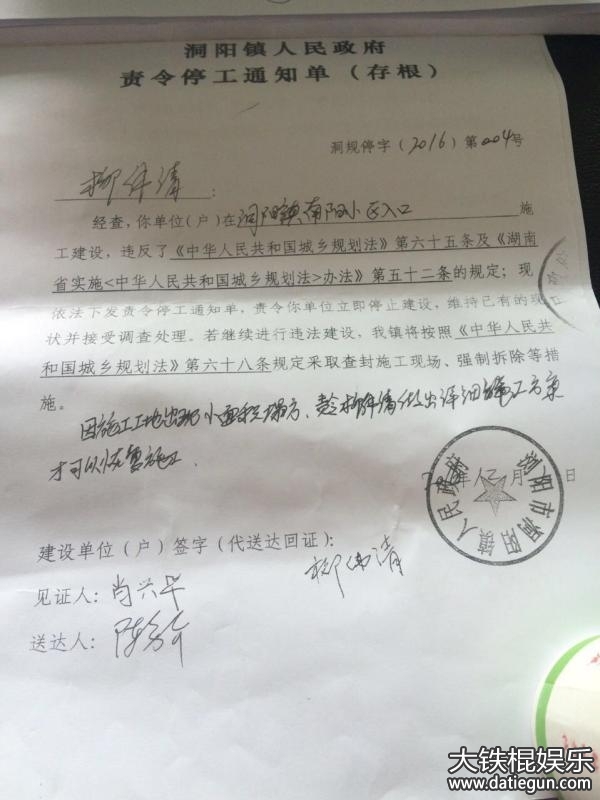 洞阳镇人民政府
责令停工通知单（存根）
洞规停字（2016）第004号
柳伟清：
经查，你单位（户）在洞阳镇南阳小区入口施
工建设，违反了《中华人民共和国城乡规划法》第六十五条及《湖南
省实施<中华人民共和国城乡规划法>办法》第五十二条的规定；现
依法下发责令停工通知单，责令你单位立即停止建设，维持已有的现
状并接受调查处理。若继续进行违法建设，我镇将按照《中华人民共
和国城乡规划法》第六十八条规定采取查封施工现场、强制拆除等措
施。
因施工工地出现小面积塌方、柳伟清做出详细施工方案
才可以恢复施工
年 月 日
浏阳市洞阳镇人民政府
建设单位（户）签字（代送达回证）：
柳伟清
见证人：肖兴华
送达人：陈
大铁棍娱乐
www.datiegun.com